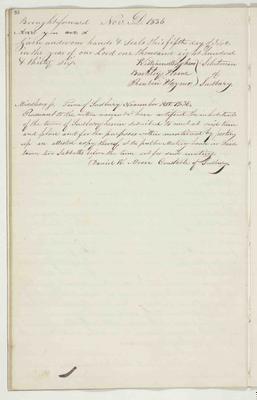 Brought forward Nov. 1836
Given under our hands & Seals this fifth day of
in the year of our Lord one thousand eight hundred
& thirty six. William Selectmen
of
Reuben Sudbury
Middlesex ss. Town of Sudbury November 1836.
Pursuant to the within warrant I have notified the inhabitants
of the town of Sudbury herein described to meet at said time
and place and for the purposes within mentioned by posting
up an attested copy thereof at the public Meeting house in said
town two Sabbaths before the time set for said meeting.
Daniel Constable of Sudbury